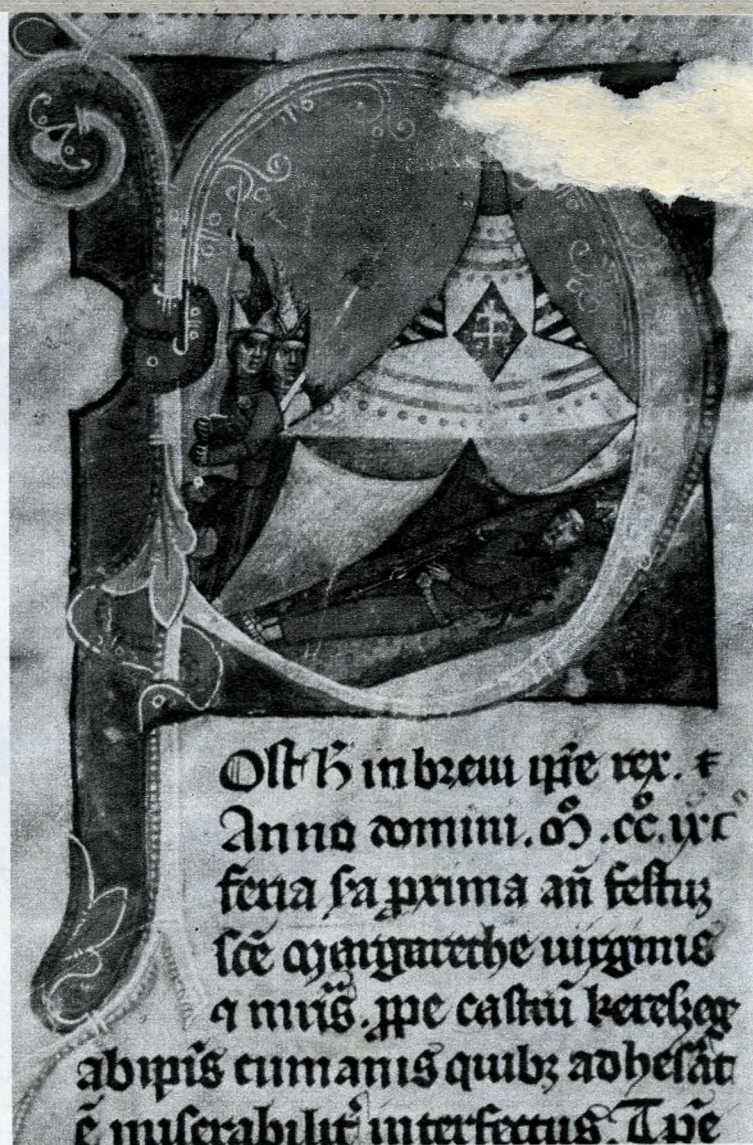 Ost h̄ in breui ip̄e rex. ⁊
Anno domini. m̊.cc̊.xc̊
feria .va. ꝓxima an̄ festuꝫ
sc̄e Margarethe uirginis
⁊ mr̄is. ꝓpe castrū kerezeg
ab ip̄is cumanis quibꝫ adhes̄at
ē miserabilit̓ interfectus. T p̄e